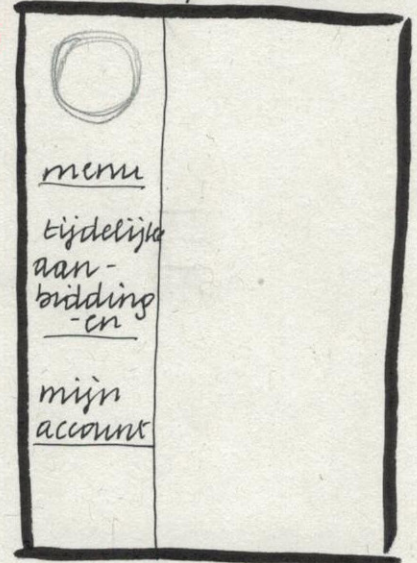 menu
tijdelijke
aan-
bidding
-en
mijn
account